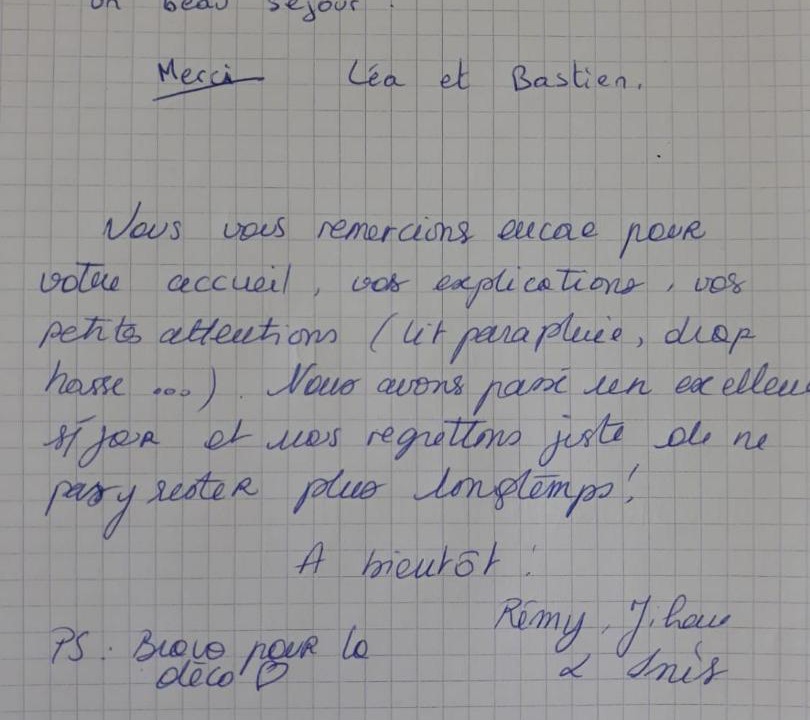 un beau séjour.
Merci Léa et Bastien.
Nous vous remercions encore pour
votre accueil, vos explications, vos
petites attentions (lit parapluie, drap
housse ...). Nous avons passé un excellen
séjour et nous regrettons juste de ne
pas y rester plus longtemps!
A bientôt!
Rémy, Jihau
& Inès
PS: Bravo pour la
déco ♡